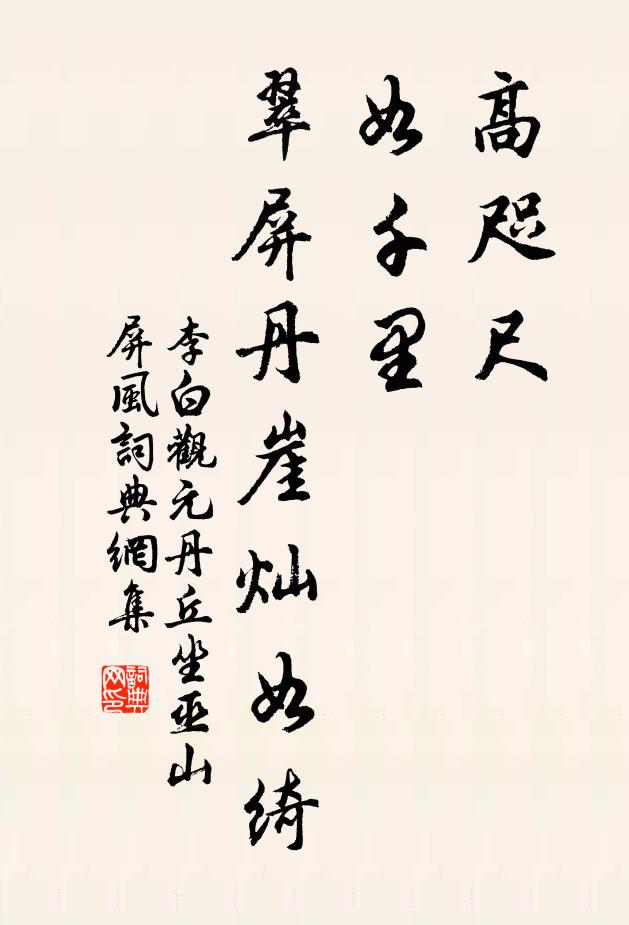 高咫尺
如千里
翠屏丹崖灿如绮
李白觀元丹丘坐巫山
屏風詞典網集
詞典
网印